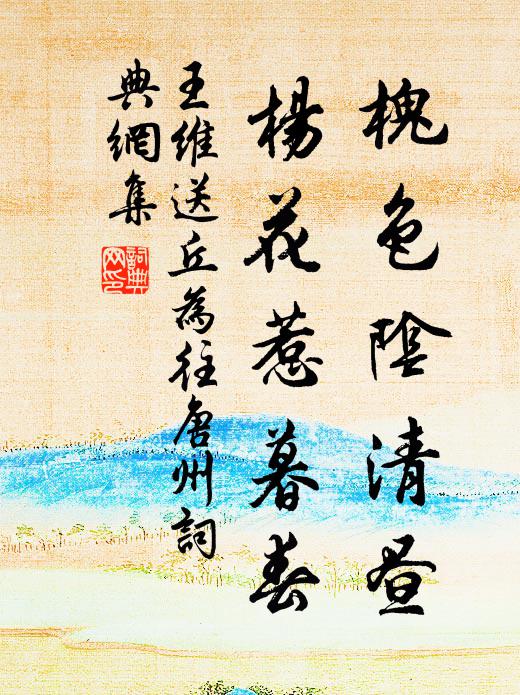 槐色陰清晝
楊花惹暮春
王維送丘為往唐州詞
典網集
詞典
网印